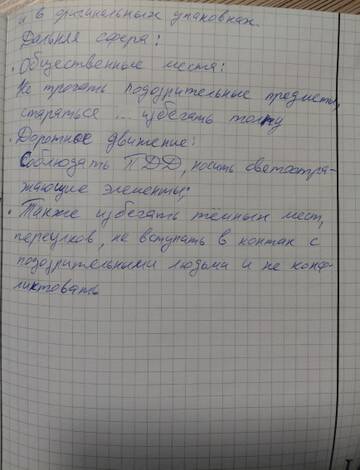 и в оригинальных упаковках.
Дальняя сфера:
• Общественные места:
Не трогать подозрительные предметы,
стараться ... избегать толпу
• Дорожное движение:
Соблюдать ПДД, носить светоотра-
жающие элементы;
• Также избегать тёмных мест,
переулков, не вступать в контак с
подозрительными людьма и не конф-
ликтовать